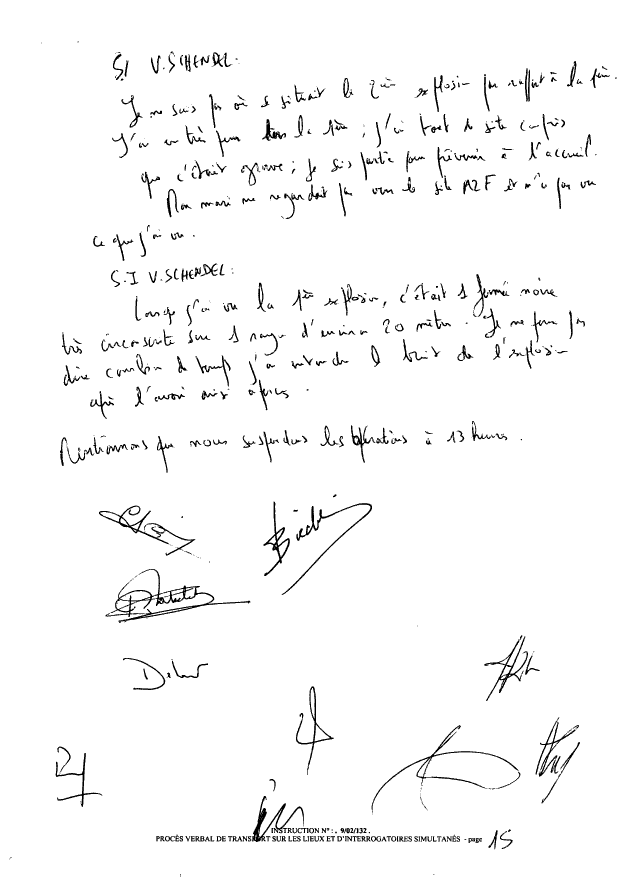 S.I V.SCHENDEL.
Je ne sais pas où se situait la 2ème explosion par rapport à la 1ère.
J'ai eu très peur dans la 1ère ; j'ai tout de suite compris
que c'était grave ; je suis partie pour prévenir à l'accueil.
Mon mari ne regardait pas vers le site AZF et n'a pas vu
ce que j'ai vu.
S.I V.SCHENDEL:
Lorsque j'ai vu la 1ère explosion, c'était 1 fumée noire
très circonscrite sur 1 rayon d'environ 20 mètres. Je ne peux pas
dire combien de temps j'ai entendu le bruit de l'explosion
après l'avoir aperçu.
Mentionnons que nous suspendons les opérations à 13 heures.
INSTRUCTION N° : . 9/02/132 .
PROCÈS VERBAL DE TRANSPORT SUR LES LIEUX ET D'INTERROGATOIRES SIMULTANÉS - page 15